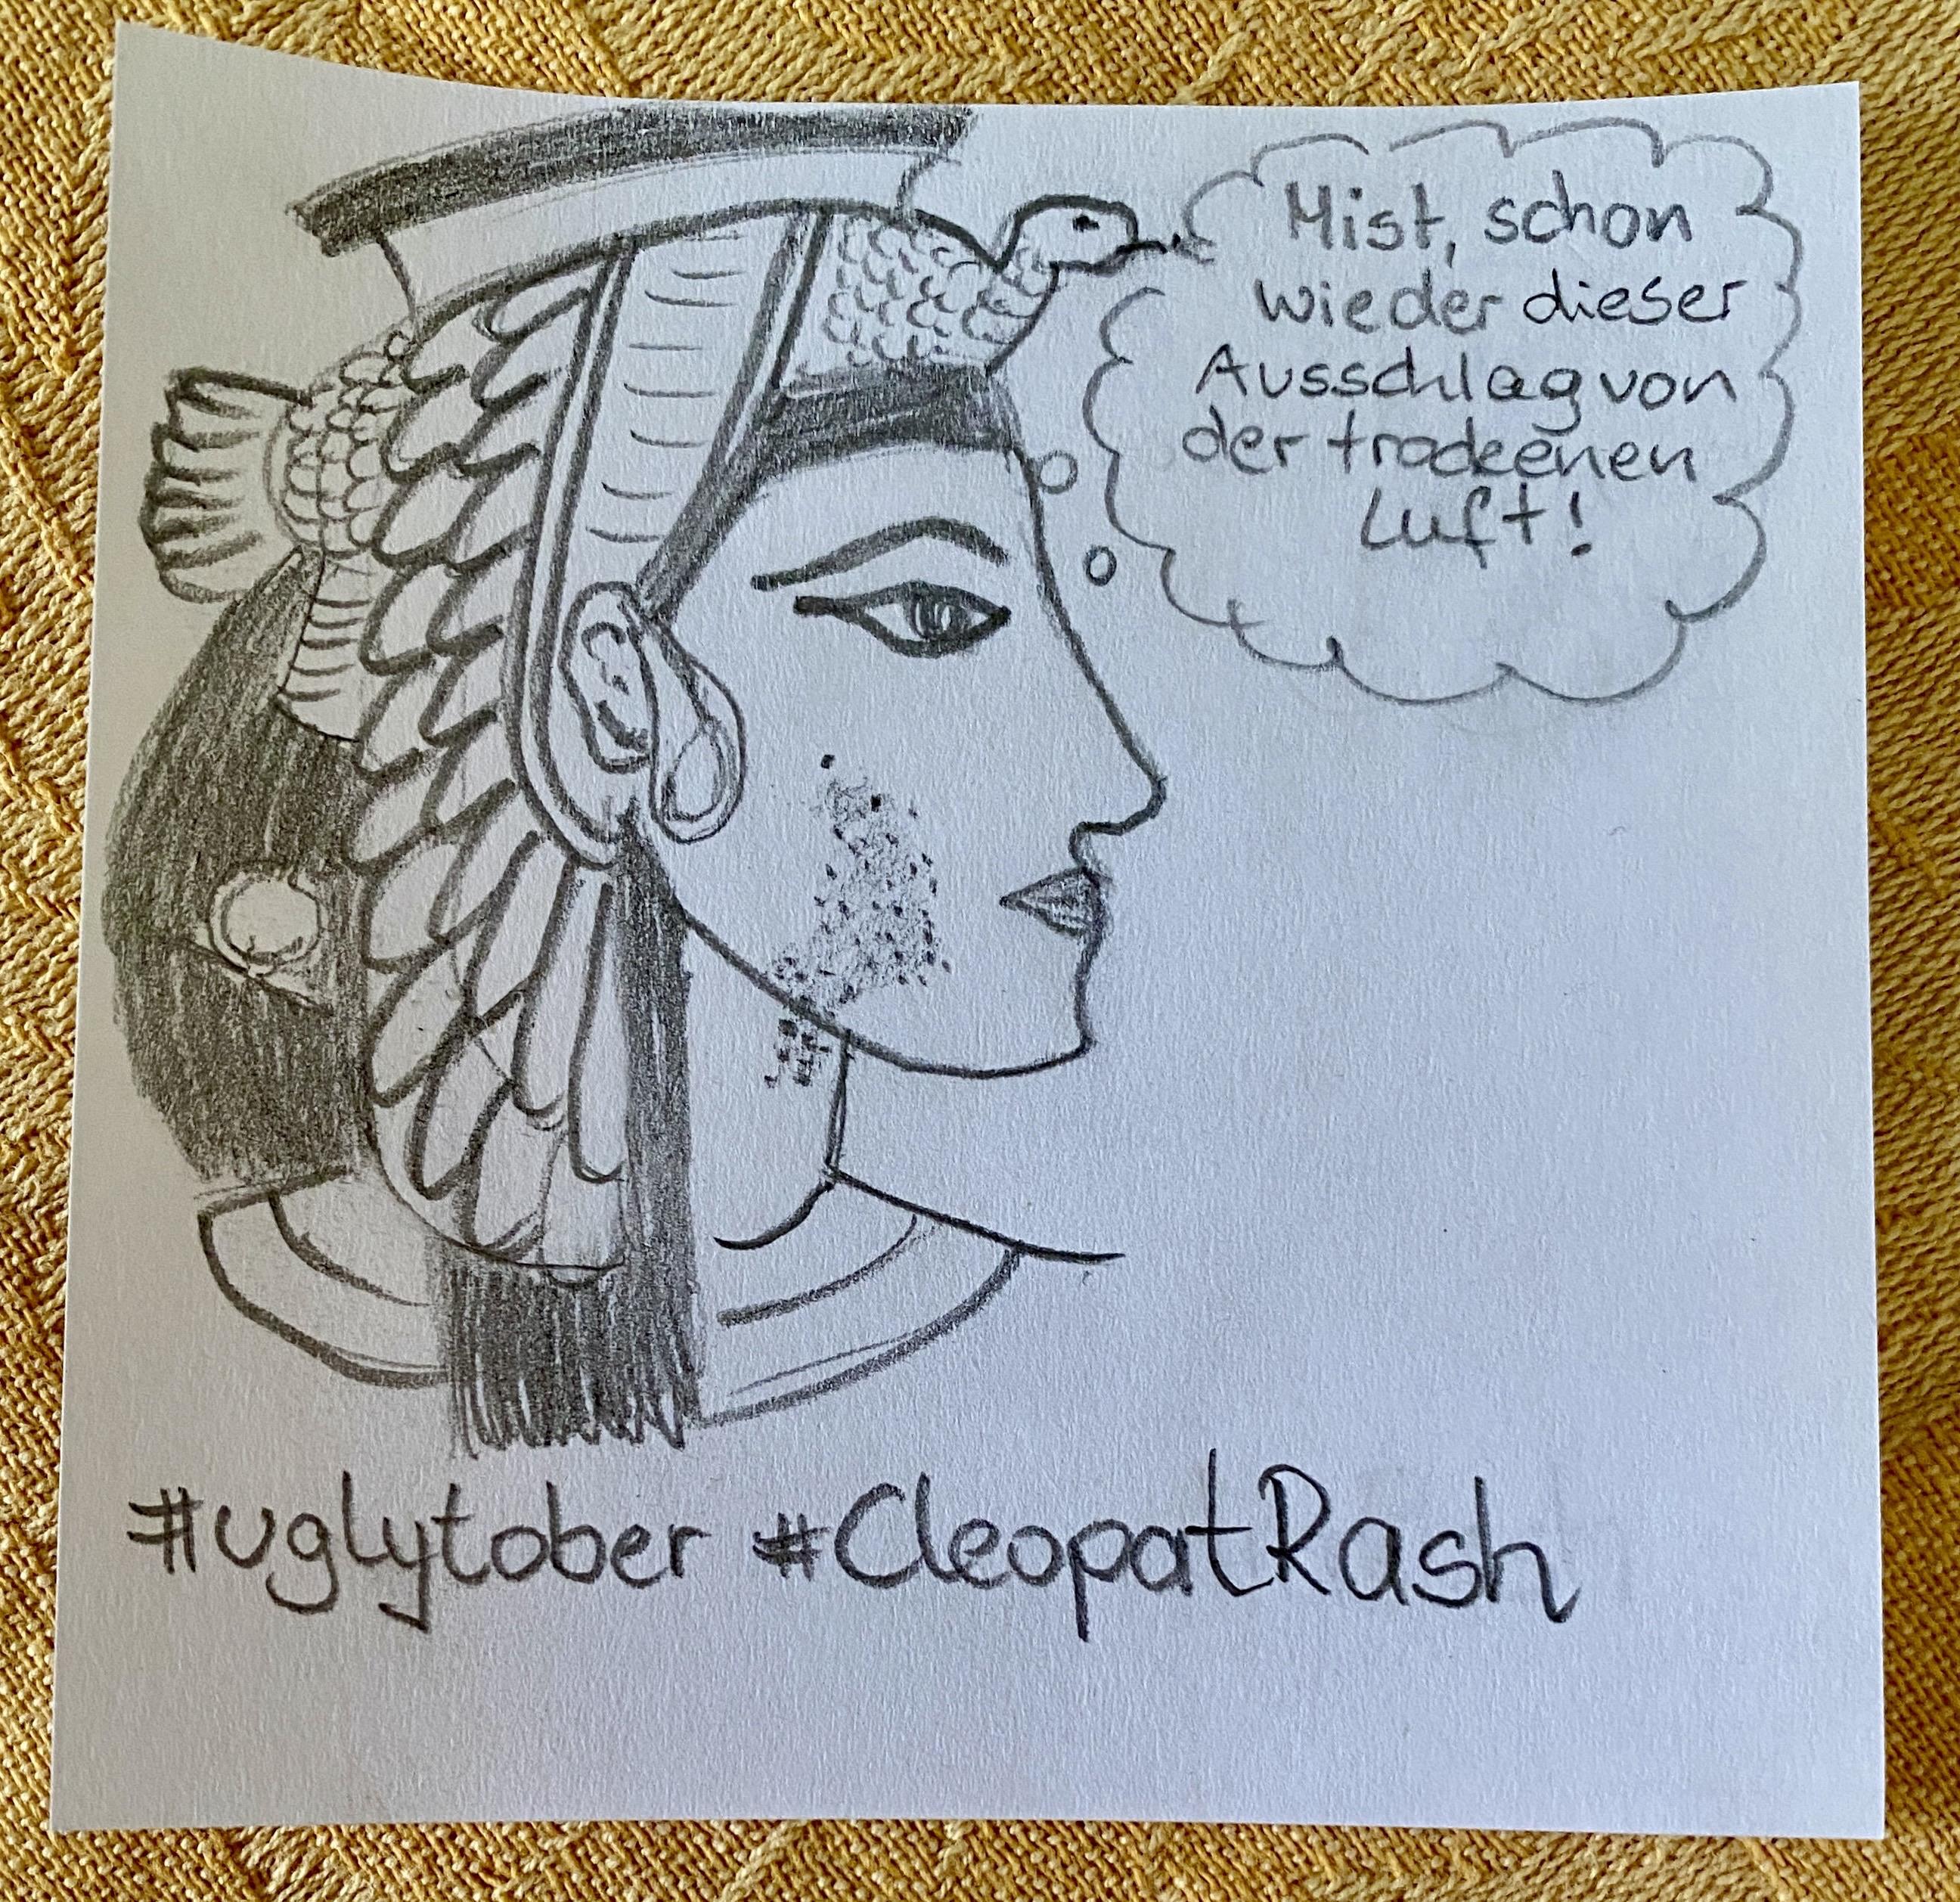 Mist, schon
wieder dieser
Ausschlag von
der trockenen
Luft!
#uglytober #CleopatRash